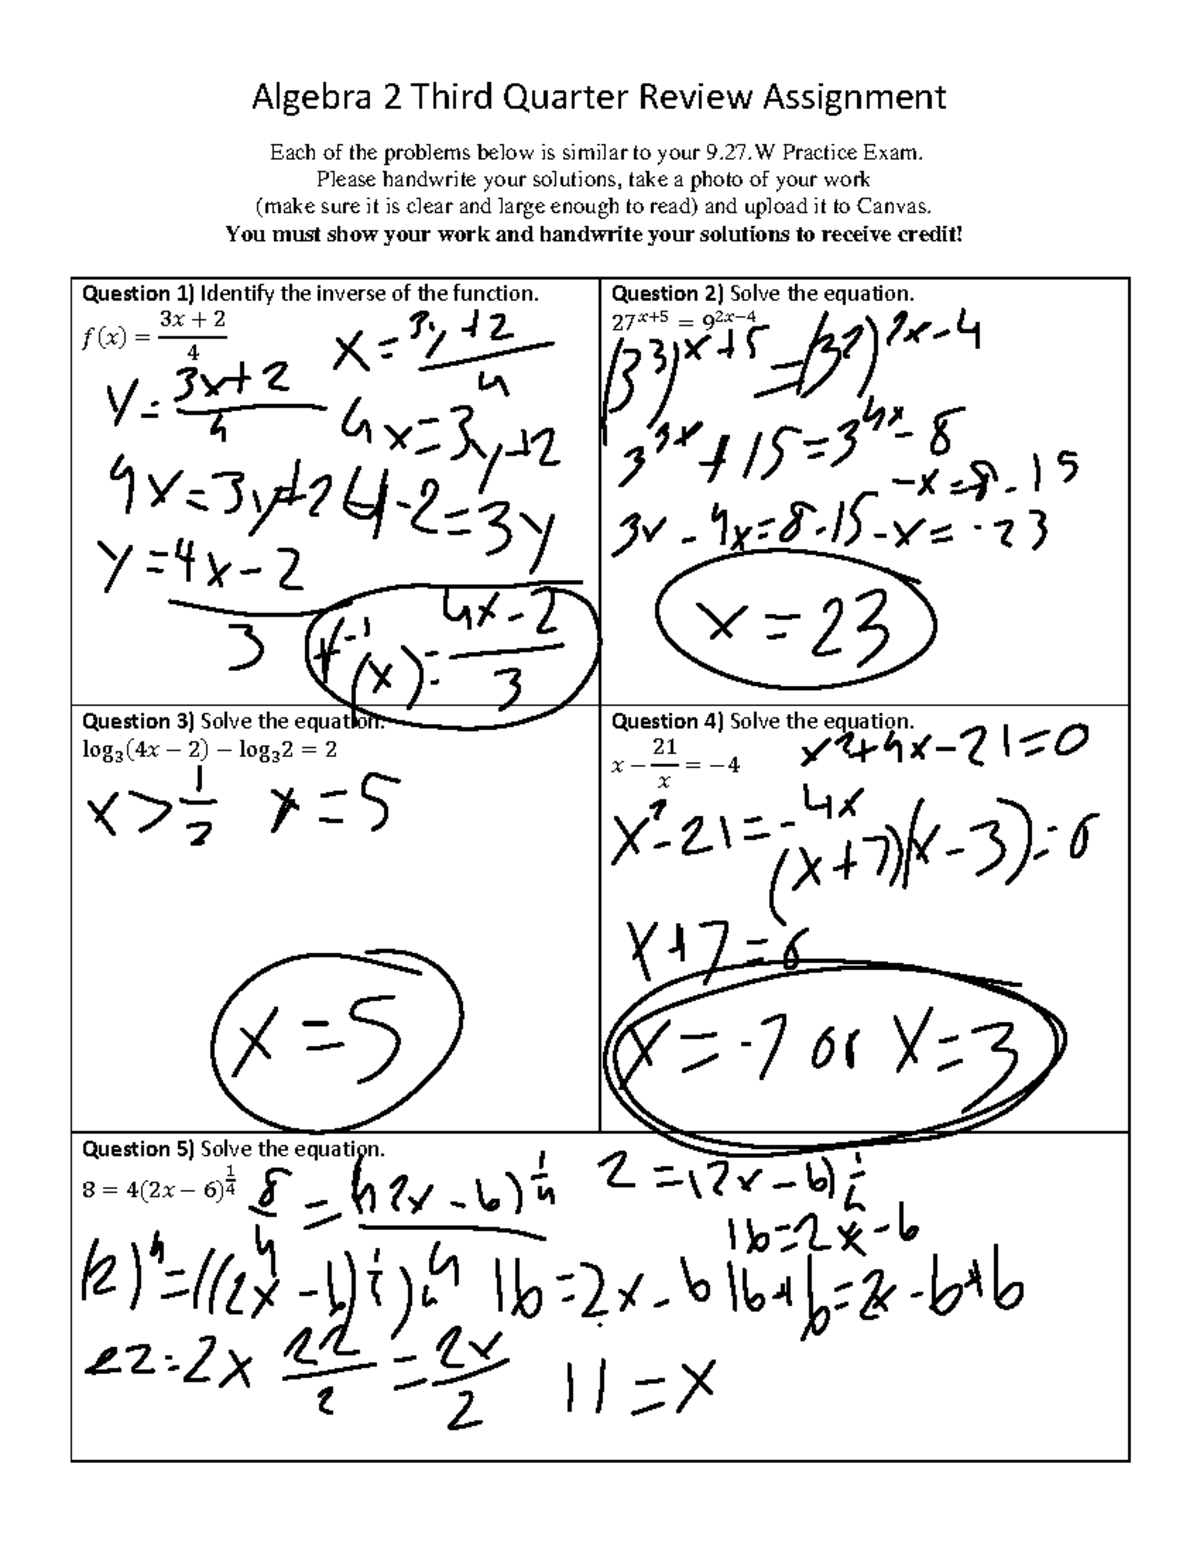 Algebra 2 Third Quarter Review Assignment
Each of the problems below is similar to your 9.27.W Practice Exam.
Please handwrite your solutions, take a photo of your work
(make sure it is clear and large enough to read) and upload it to Canvas.
You must show your work and handwrite your solutions to receive credit!
Question 1) Identify the inverse of the function.
f(x) = (3x + 2)/4
x = (3y + 2)/4
y = (3x + 2)/4
4x = 3y + 2
4x = 3y + 2
4-2 = 3y
y = (4x - 2)/3
f^-1(x) = (4x - 2)/3
Question 2) Solve the equation.
27^(x+5) = 9^(2x−4)
(3^3)^(x+5) = (3^2)^(2x-4)
3^(3x) + 15 = 3^(4x) - 8
-x = 8 - 15
3x - 4x = 8 - 15 - x = -23
x = 23
Question 3) Solve the equation.
log₃(4x − 2) − log₃2 = 2
x > 1/2 x = 5
x = 5
Question 4) Solve the equation.
x − 21/x = −4
x^2 + 4x - 21 = 0
x^2 - 21 = -4x
(x + 7)(x - 3) = 0
x + 7 = 0
x = -7 or x = 3
Question 5) Solve the equation.
8 = 4(2x − 6)^(1/4)
8/4 = (4(2x - 6)^(1/4)
2 = (2x - 6)^(1/4)
16 = 2x - 6
(2)^4 = ((2x - 6)^(1/4))^4
16 = 2x - 6
16 + 6 = 2x - 6 + 6
22 = 2x
22/2 = 2x/2
11 = x